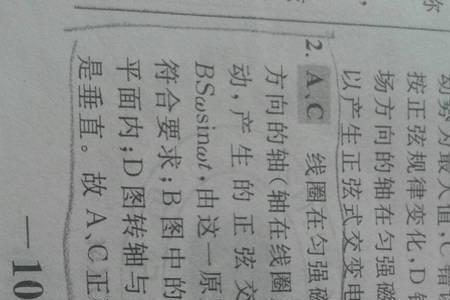 动势为最大值,C错
按正弦规律变化,D
场方向的轴在匀强磁
以产生正弦式交变电
2. A、C 线圈在匀强磁
方向的轴(轴在线圈
动,产生的正弦交
BSωsinωt,由这一原
符合要求;B图中的
平面内;D图转轴与
是垂直。故A、C正
—10